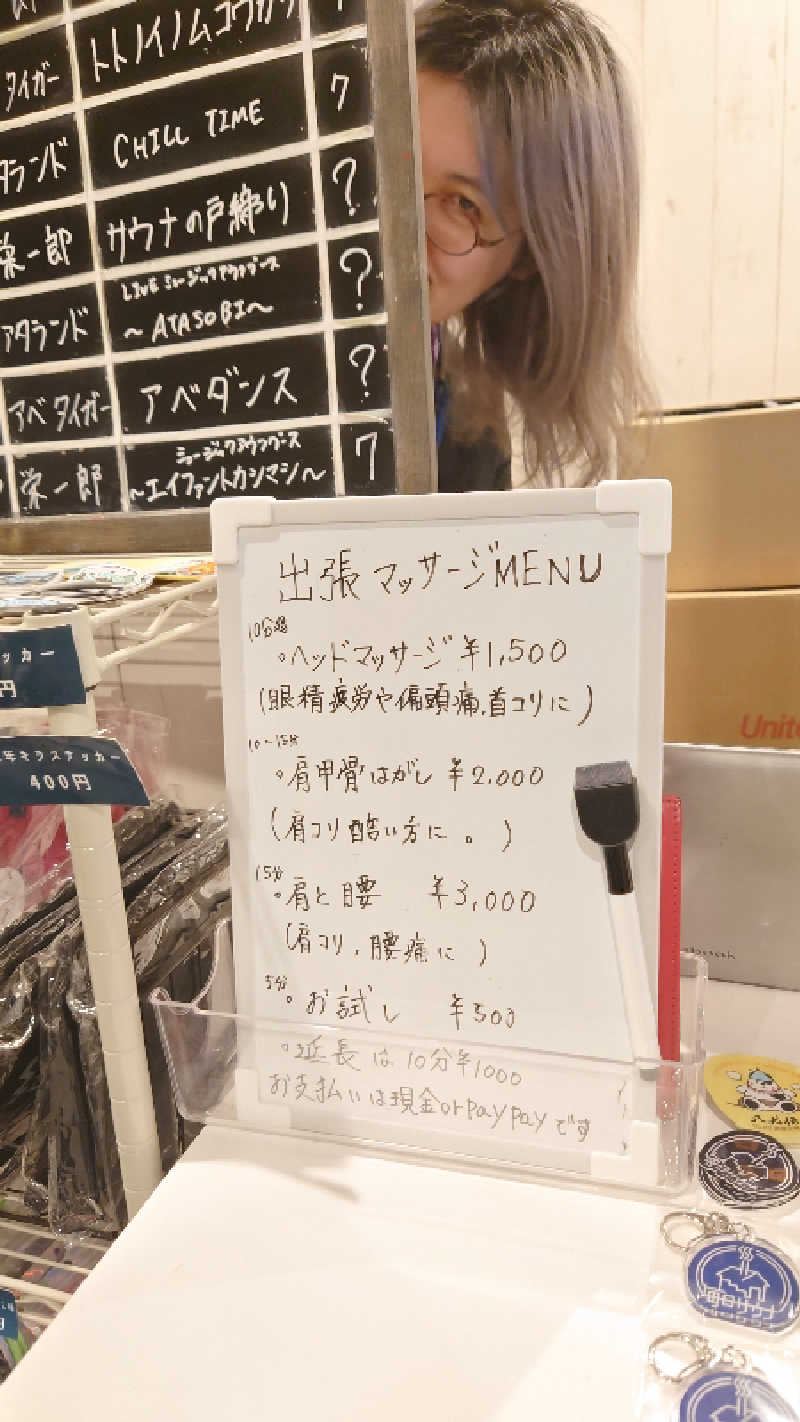 郎
タイガー トトノイノムコウガワ
タランド CHILL TIME 7
栄一郎 サウナの戸締り ?
アタランド LIVE ミュージックアウフグース ?
～ATASOBI～
アベタイガー アベダンス ?
栄一郎 ミュージックアウフグース 7
～エイファントカシマシ～
出張マッサージMENU
10分
・ヘッドマッサージ ¥1,500
(眼精疲労や偏頭痛、首コリに)
10～15分
・肩甲骨はがし ¥2,000
(肩コリ酷い方に。)
15分
・肩と腰 ¥3,000
(肩コリ、腰痛に)
5分
・お試し ¥500
・延長は10分¥1000
お支払いは現金orpaypayです
ッカー
円
キラステッカー
400円
Unite
毎日サウナ